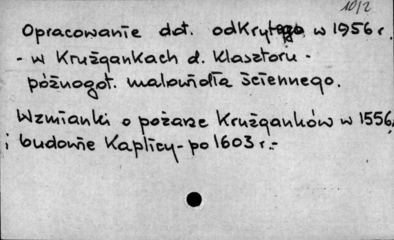 10/2
Opracowanie dot. odkrytego w 1956 r.
- w Krużgankach d. Klasztoru -
późnogot. malowidła ściennego.
Wzmianki o pożarze Krużganków w 1556,
i budowie Kaplicy - po 1603 r.-